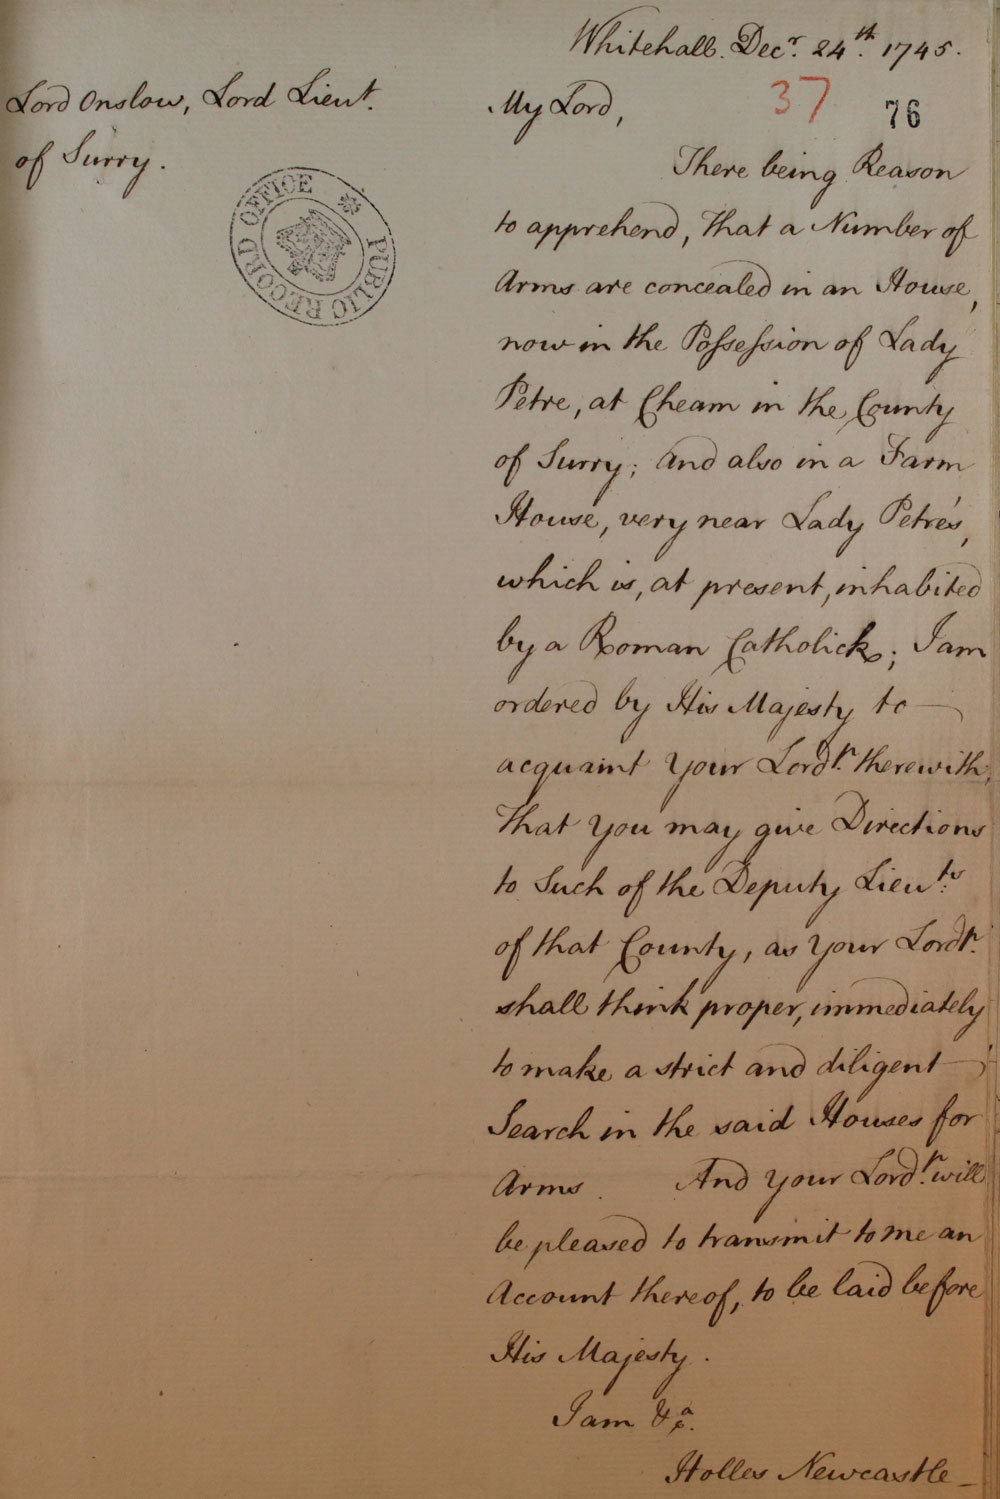 Whitehall. Decr. 24th. 1745.
Lord Onslow, Lord Lieut.
of Surry.
My Lord,
37
76
PUBLIC RECORD OFFICE
There being Reason
to apprehend, that a Number of
Arms are concealed in an House,
now in the Possession of Lady
Petre, at Cheam in the County
of Surry; and also in a Farm
House, very near Lady Petre's,
which is, at present, inhabited
by a Roman Catholick; I am
ordered by His Majesty to
acquaint Your Lordp. therewith,
that You may give Directions
to Such of the Deputy Lieuts.
of that County, as Your Lordp.
shall think proper, immediately
to make a strict and diligent
Search in the said Houses for
Arms. And Your Lordp. will
be pleased to transmit to me an
Account thereof, to be laid before
His Majesty.
I am &ca.
Holles Newcastle